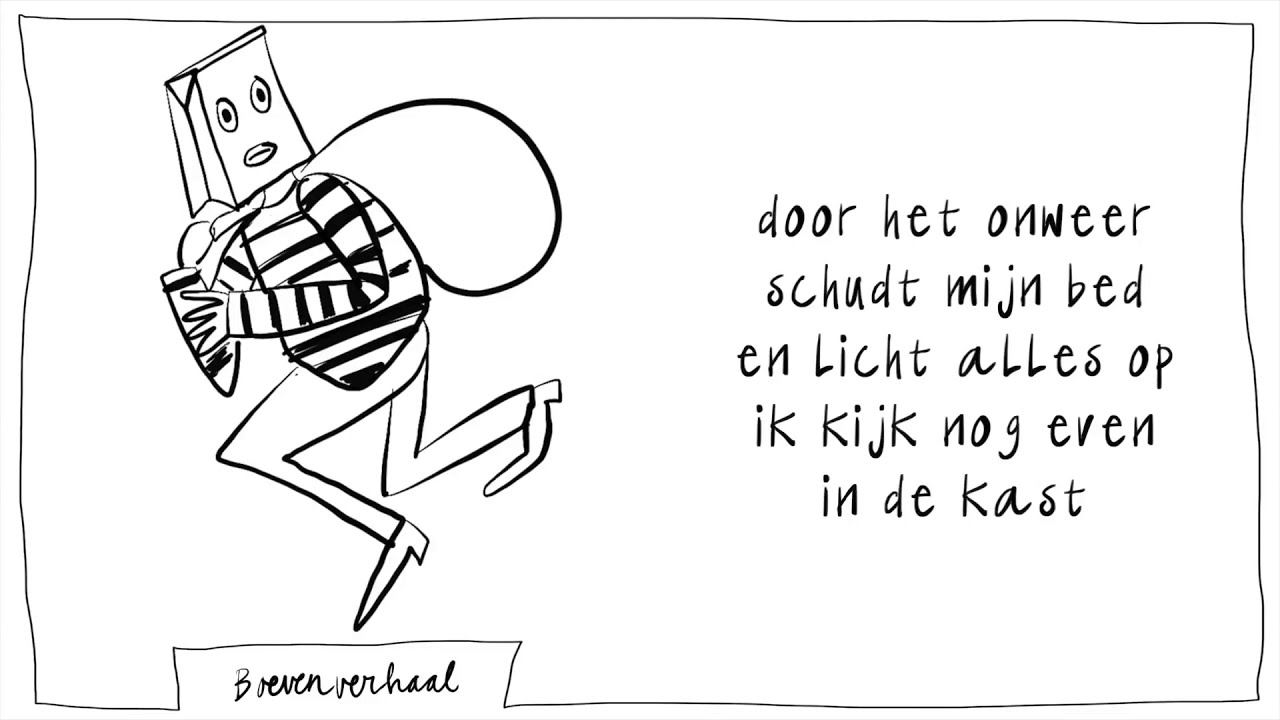 door het onweer
schudt mijn bed
en licht alles op
ik kijk nog even
in de kast
Boevenverhaal